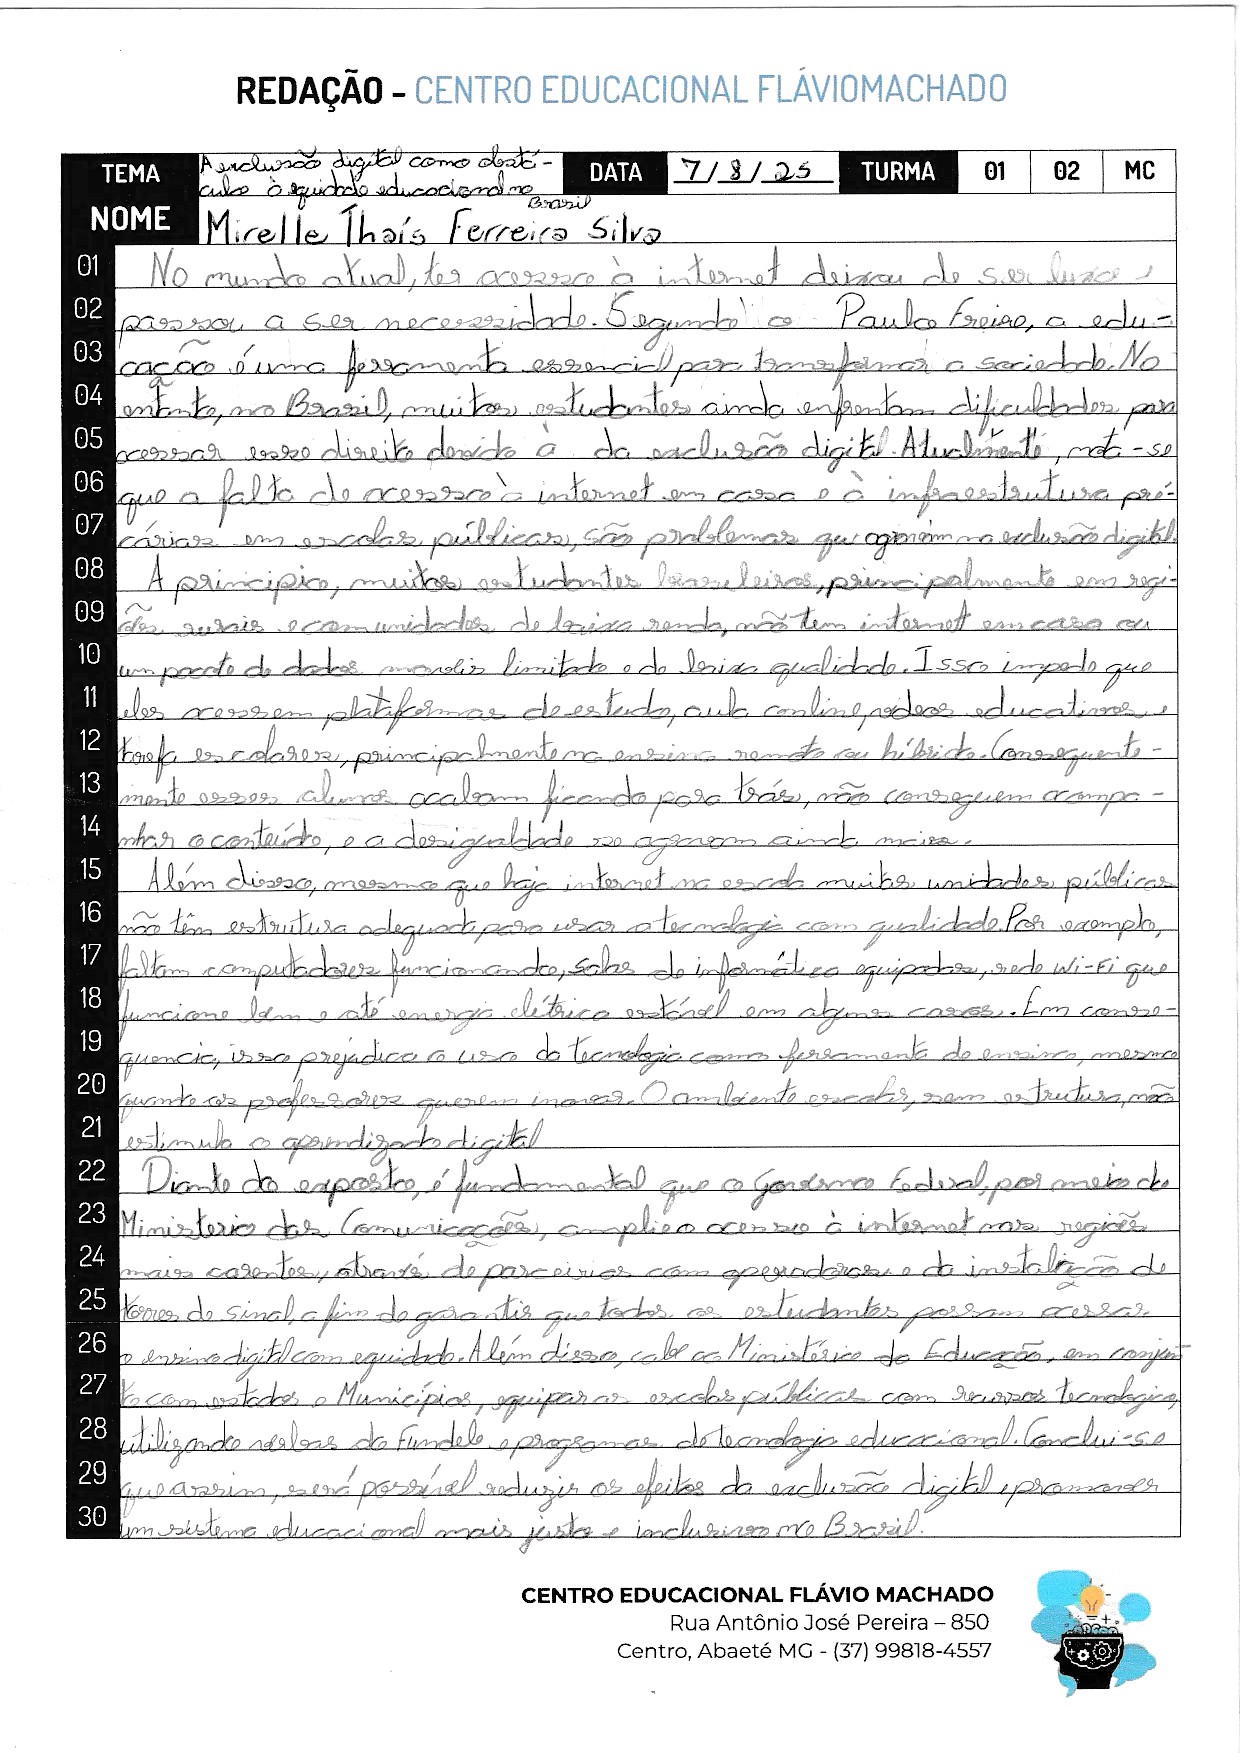 REDAÇÃO - CENTRO EDUCACIONAL FLÁVIOMACHADO
TEMA
A exclusão digital como obstá-
culo à equidade educacional no
Brasil
DATA 7/8/25 TURMA 01 02 MC
NOME Mirelle Thaís Ferreira Silva
01 No mundo atual, ter acessso à internet deixou de ser luxo e
02 passou a ser necessidade. Segundo o Paulo Freire, a edu-
03 cação é uma ferramenta essencial para transformar a sociedade. No
04 entanto, no Brasil, muitos estudantes ainda enfrentam dificuldades para
05 acessar esse direito devido à da exclusão digital. Atualmente, nota-se
06 que a falta de acessso à internet em casa e à infraestrutura pré-
07 cárias em escolas públicas, são problemas que agravam na exclusão digital.
08 A princípio, muitos estudantes brasileiros, principalmente em regi-
09 ões rurais e comunidades de baixa renda, não tem internet em casa ou
10 um pacote de dados moveis limitado e de baixa qualidade. Isso impede que
11 eles acessem plataformas de estudo, aula online, videos educativos e
12 tarefa escolares, principalmente no ensino remoto ou híbrido. Consequente-
13 mente esses alunos acabam ficando para trás, não conseguem acompa-
14 nhar o conteúdo, e a desigualdade se agravam ainda mais.
15 Além disso, mesmo que haja internet na escola muitas unidades públicas
16 não têm estrutura adequada para usar a tecnologia com qualidade. Por exemplo,
17 faltam computadores funcionando, salas de informática equipadas, rede Wi-Fi que
18 funcione bem e até energia elétrica estável em alguns casos. Em conse-
19 quencia, isso prejudica o uso da tecnologia como ferramenta de ensino, mesmo
20 quanto os professores querem inovar. O ambiente escolar, sem estrutura, não
21 estimula o aprendizado digital
22 Diante do exposto, é fundamental que o Governo Federal, por meio do
23 Ministerio das Comunicações, amplie o acesso à internet nas regiões
24 mais carentes, através de parceirias com operadoras e da instalação de
25 torres de sinal, a fim de garantir que todos os estudantes possam acessar
26 o ensino digital com equidade. Além disso, cabe ao Ministério da Educação, em conjun-
27 to com estados e Municípios, equipar as escolas públicas com recursos tecnologico,
28 utilizando verbas do Fundeb e programas de tecnologia educacional. Conclui-se
29 que assim, será possível reduzir os efeitos da exclusão digital e promover
30 um sistema educacional mais justo e inclusivo no Brasil.
CENTRO EDUCACIONAL FLÁVIO MACHADO
Rua Antônio José Pereira – 850
Centro, Abaeté MG - (37) 99818-4557